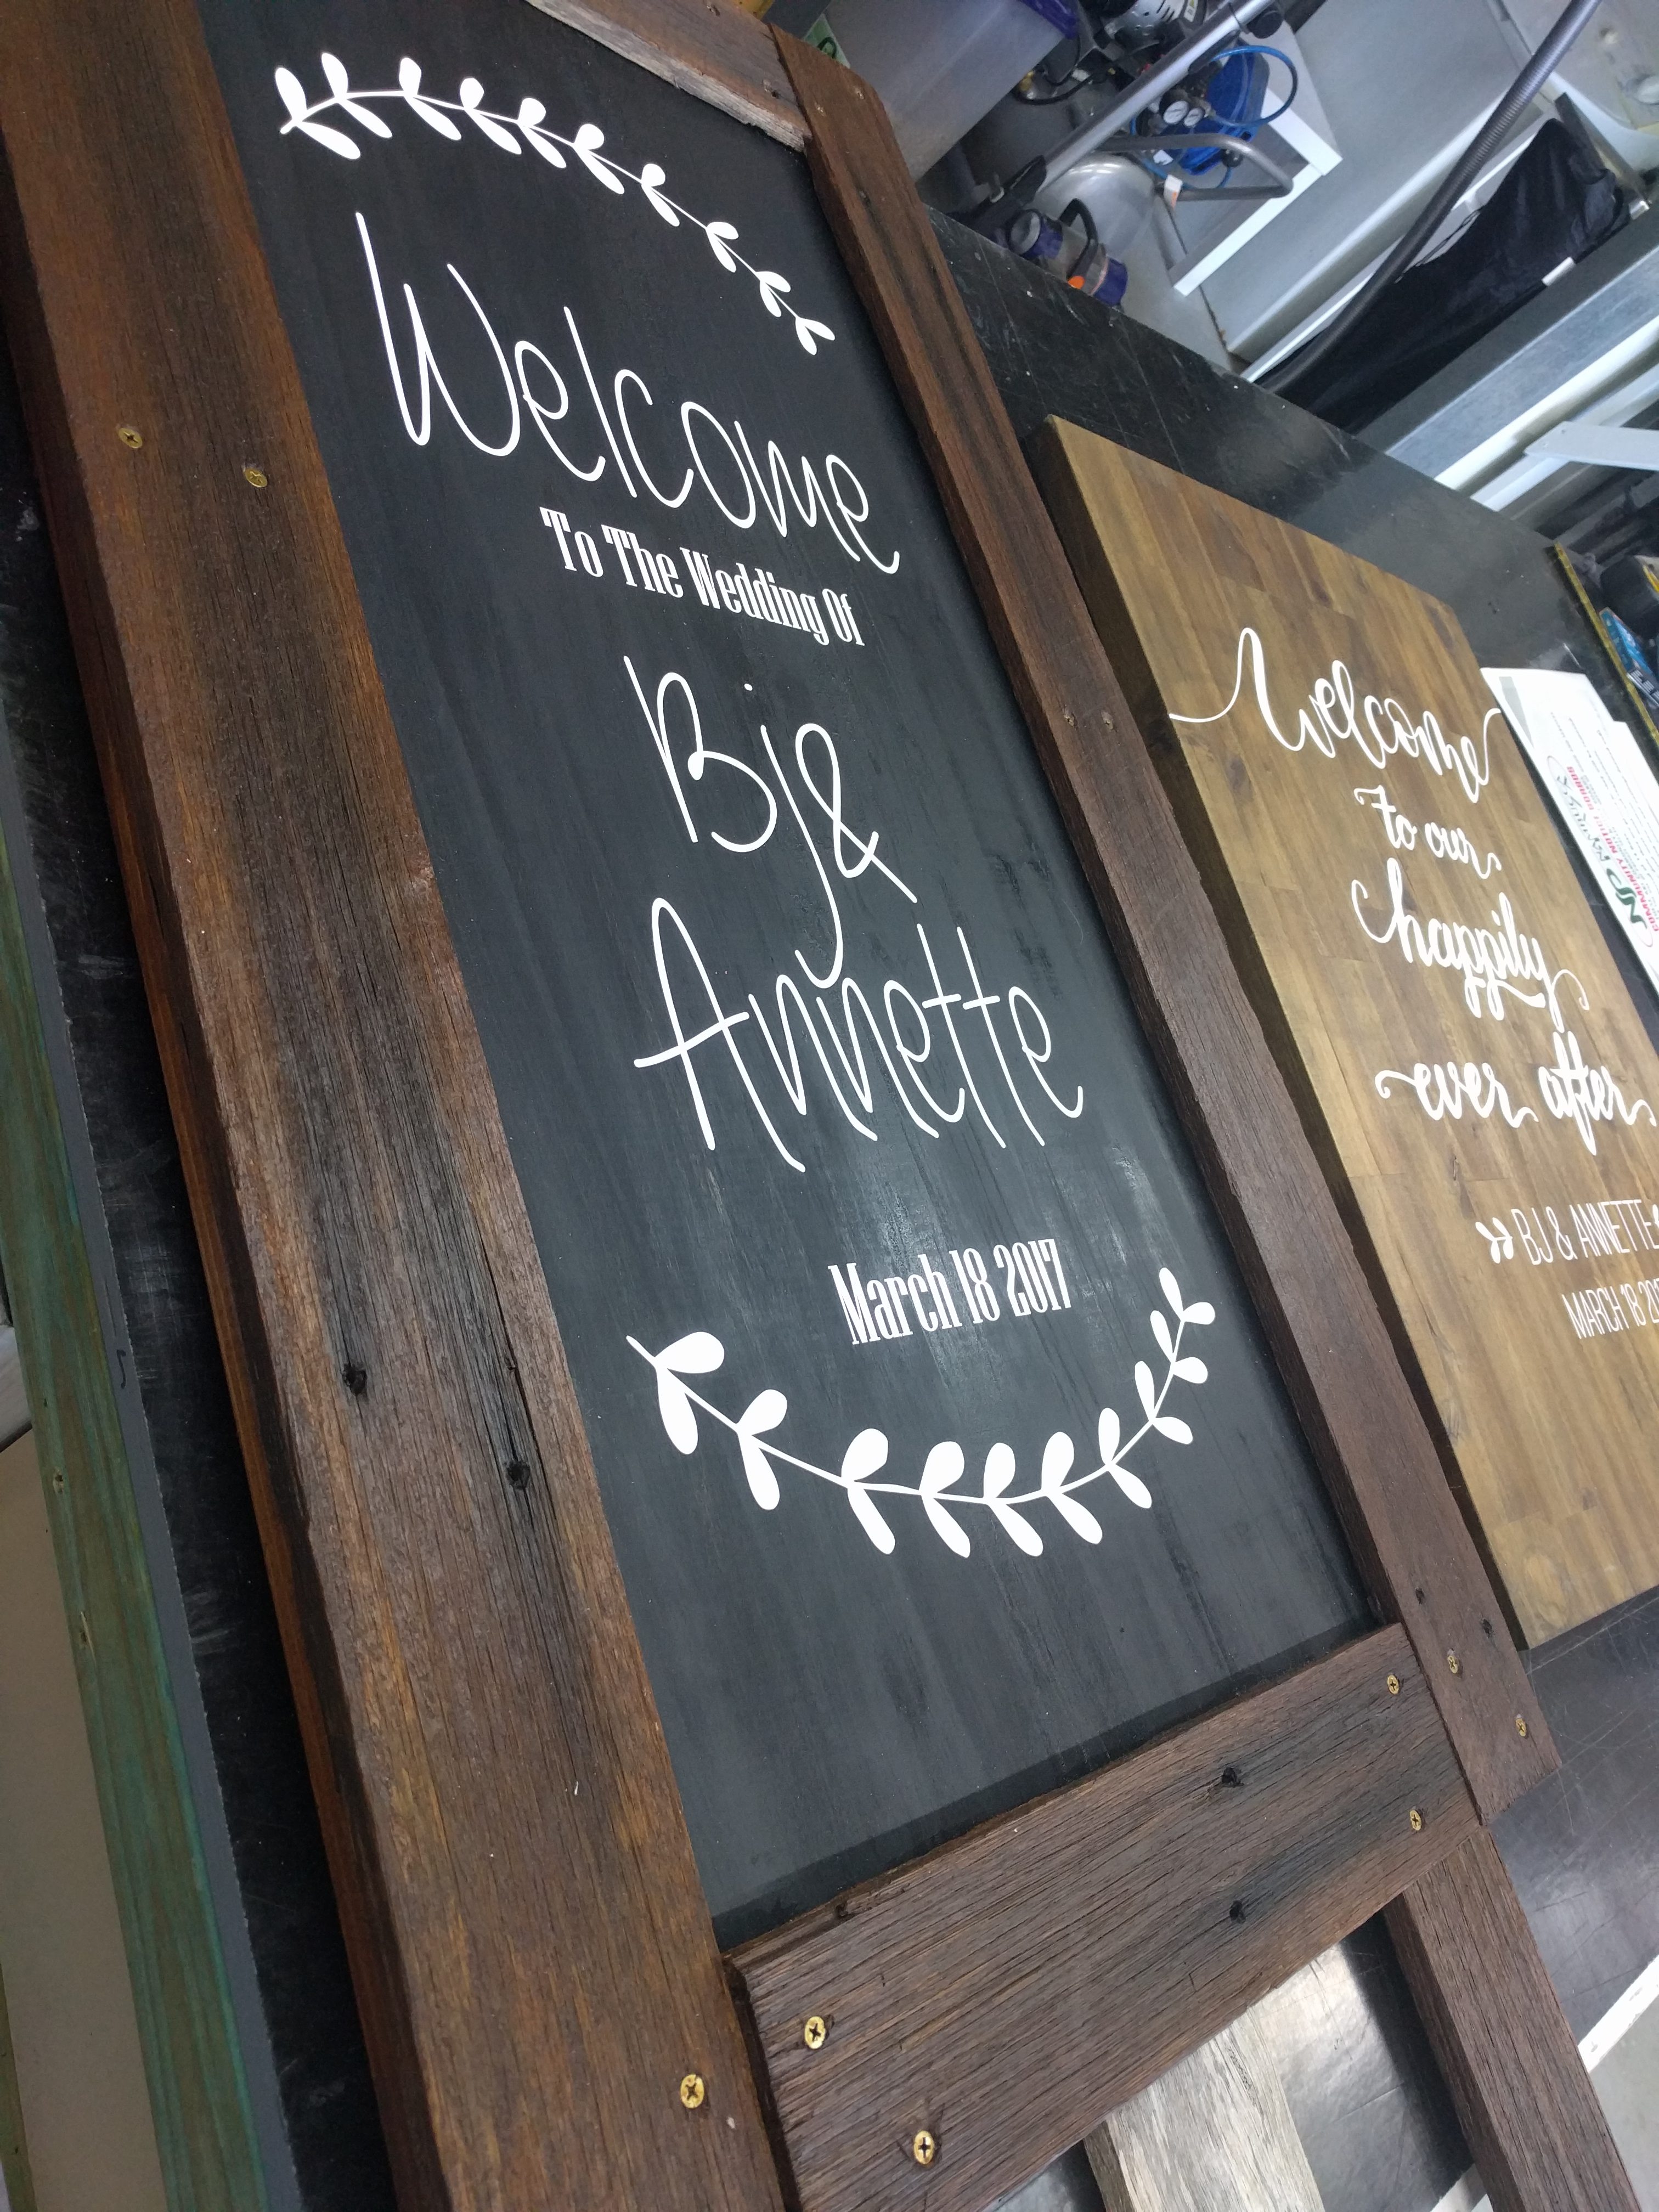 Welcome
To The Wedding Of
Bj &
Annette
March 18 2017
welcome
to our
happily
ever after
BJ & ANNETTE
MARCH 18
COMMUNITY